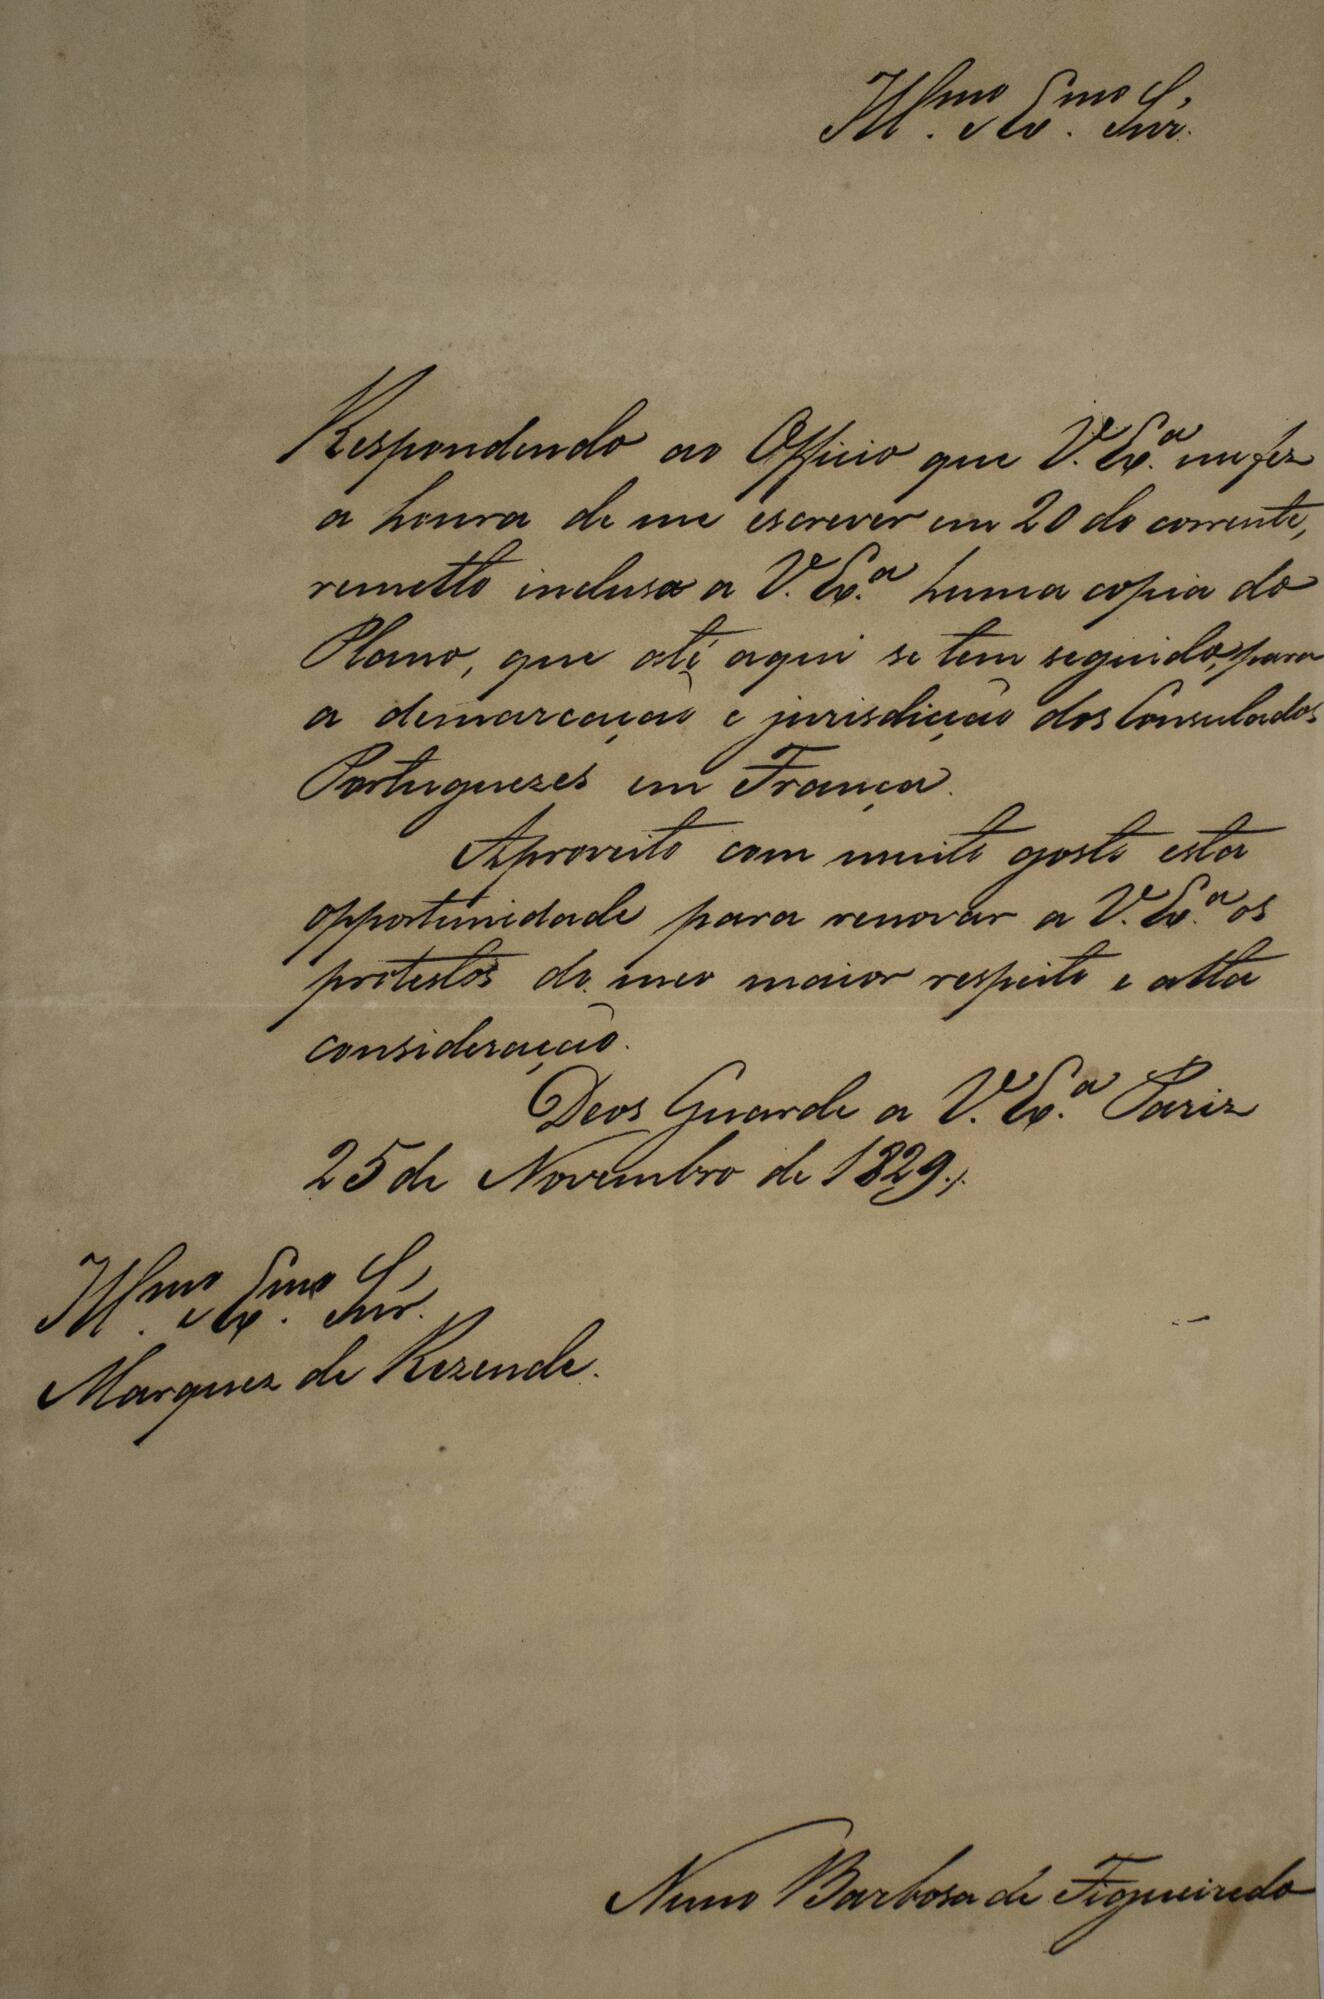 Illmo. e Exmo. Snr.
Respondendo ao Officio que V. Exª. me fez
a honra de me escrever em 20 do corrente,
remetto inclusa a V. Exª. huma copia do
Plano, que até aqui se tem seguido, para
a demarcação e jurisdicção dos Consulados
Portuguezes em França.
Aproveito com muito gosto esta
opportunidade para renovar a V. Exª. os
protestos do meo maior respeito e alta
consideração.
Deos Guarde a V. Exª. Pariz
25 de Novembro de 1829./.
Illmo. e Exmo. Snr.
Marquez de Rezende.
Nuno Barbosa de Figueiredo